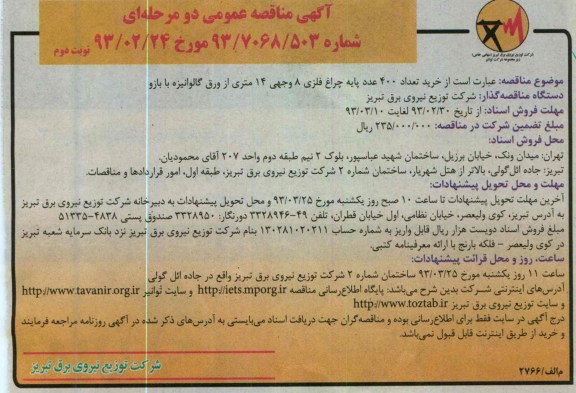 آگهی مناقصه عمومی دو مرحله‌ای
شماره ۹۳/۷۰۶۸/۵۰۳ مورخ ۹۳/۰۲/۲۴
نوبت دوم
شرکت توزیع نیروی برق تبریز
موضوع مناقصه: عبارت است از خرید تعداد ۴۰۰ عدد پایه چراغ فلزی ۸ وجهی ۱۴ متری از ورق گالوانیزه با بازو
دستگاه مناقصه‌گذار: شرکت توزیع نیروی برق تبریز
مهلت فروش اسناد: از تاریخ ۹۳/۰۲/۳۰ لغایت ۹۳/۰۳/۱۰
مبلغ تضمین شرکت در مناقصه: ۲۳۵/۰۰۰/۰۰۰ ریال
محل فروش اسناد:
تهران: میدان ونک، خیابان برزیل، ساختمان شهید عباسپور، بلوک ۲ نیم طبقه دوم واحد ۲۰۷ آقای محمودیان.
تبریز: جاده ائل‌گولی، بالاتر از هتل شهریار، ساختمان شماره ۲ شرکت توزیع نیروی برق تبریز، طبقه اول، امور قراردادها و مناقصات.
مهلت و محل تحویل پیشنهادات:
آخرین مهلت تحویل پیشنهادات تا ساعت ۱۰ صبح روز یکشنبه مورخ ۹۳/۰۳/۲۵ و محل تحویل پیشنهادات به دبیرخانه شرکت توزیع نیروی برق تبریز
به آدرس تبریز، کوی ولیعصر، خیابان نظامی، اول خیابان قطران، تلفن ۴۹-۳۳۲۸۹۴۶ دورنگار: ۳۳۲۸۹۵۰ صندوق پستی ۴۸۳۸-۵۱۳۳۵
مبلغ فروش اسناد دویست هزار ریال قابل واریز به شماره حساب ۱۳۰۲۸۱۰۲۰۲۱۱ بنام شرکت توزیع نیروی برق تبریز نزد بانک سرمایه شعبه تبریز
در کوی ولیعصر - فلکه بارنج با ارائه معرفینامه کتبی.
ساعت، روز و محل قرائت پیشنهادات:
ساعت ۱۱ روز یکشنبه مورخ ۹۳/۰۳/۲۵ ساختمان شماره ۲ شرکت توزیع نیروی برق تبریز واقع در جاده ائل گولی
آدرس‌های اینترنتی شرکت بدین شرح می‌باشد: پایگاه اطلاع‌رسانی مناقصه http://iets.mporg.ir و سایت توانیر http://www.tavanir.org.ir
و سایت توزیع نیروی برق تبریز http://www.toztab.ir
درج آگهی در سایت فقط برای اطلاع‌رسانی بوده و مناقصه‌گران جهت دریافت اسناد می‌بایستی به آدرس‌های ذکر شده در آگهی روزنامه مراجعه فرمایند
و خرید از طریق اینترنت قابل قبول نمی‌باشد.
شرکت توزیع نیروی برق تبریز
م‌الف/۲۷۶۶